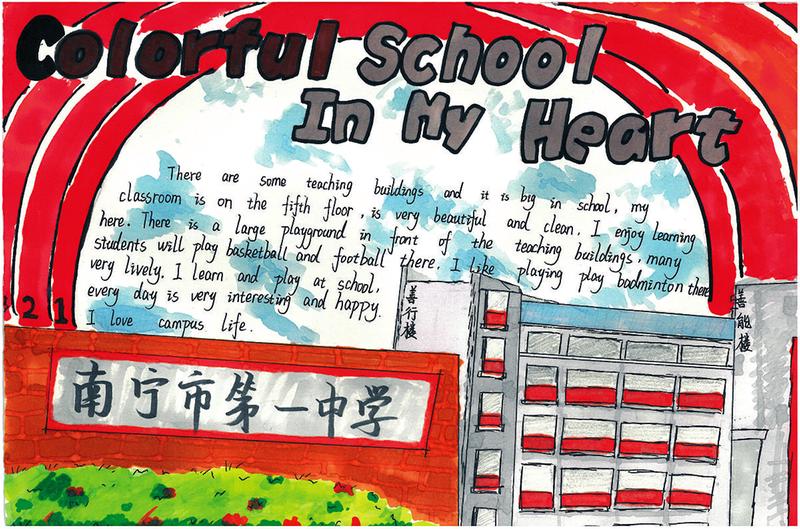 Colorful School
In My Heart
There are some teaching buildings and it is big in school, my
classroom is on the fifth floor, is very beautiful and clean. I enjoy learning
here. There is a large playground in front of the teaching buildings, many
students will play basketball and football there. I like playing play badminton there
very lively. I learn and play at school,
every day is very interesting and happy.
I love campus life.
善行楼
善能楼
2 1
南宁市第一中学